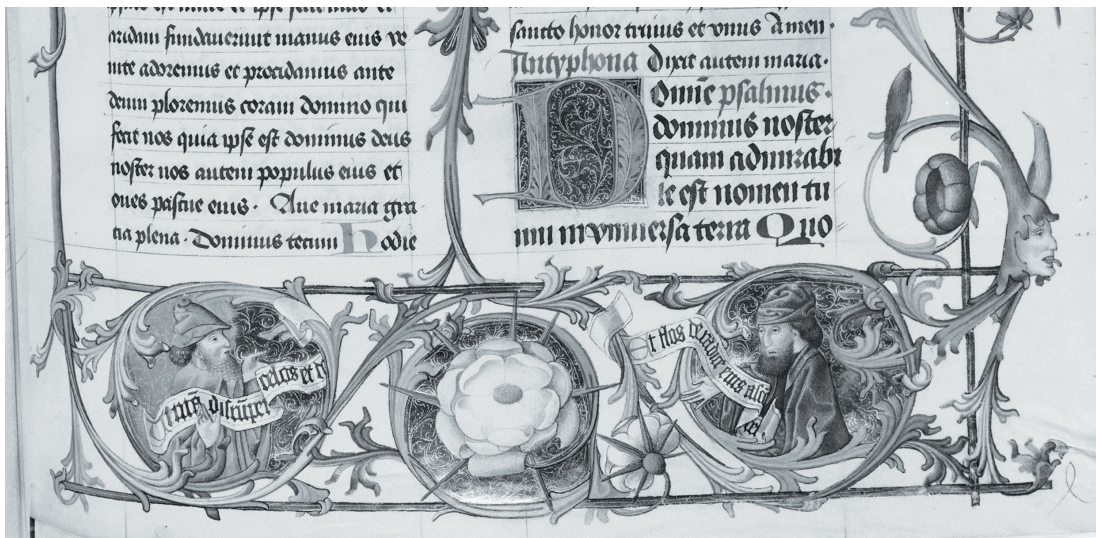 aridam fundaverunt manus eius ve
nite adoremus et procidamus ante
deum ploremus coram domino qui
fecit nos quia ipse est dominus deus
noster nos autem populus eius et
oues pascue eius. Aue maria gra
tia plena. Dominus tecum Hodie
sancto honor trinus et vnus Amen.
Antyphona Dixit autem maria.
Domine psalmus.
dominus noster
quam admirabi
le est nomen tu
um in vniuersa terra Quo
celos et d
Et flos de radice eius asce